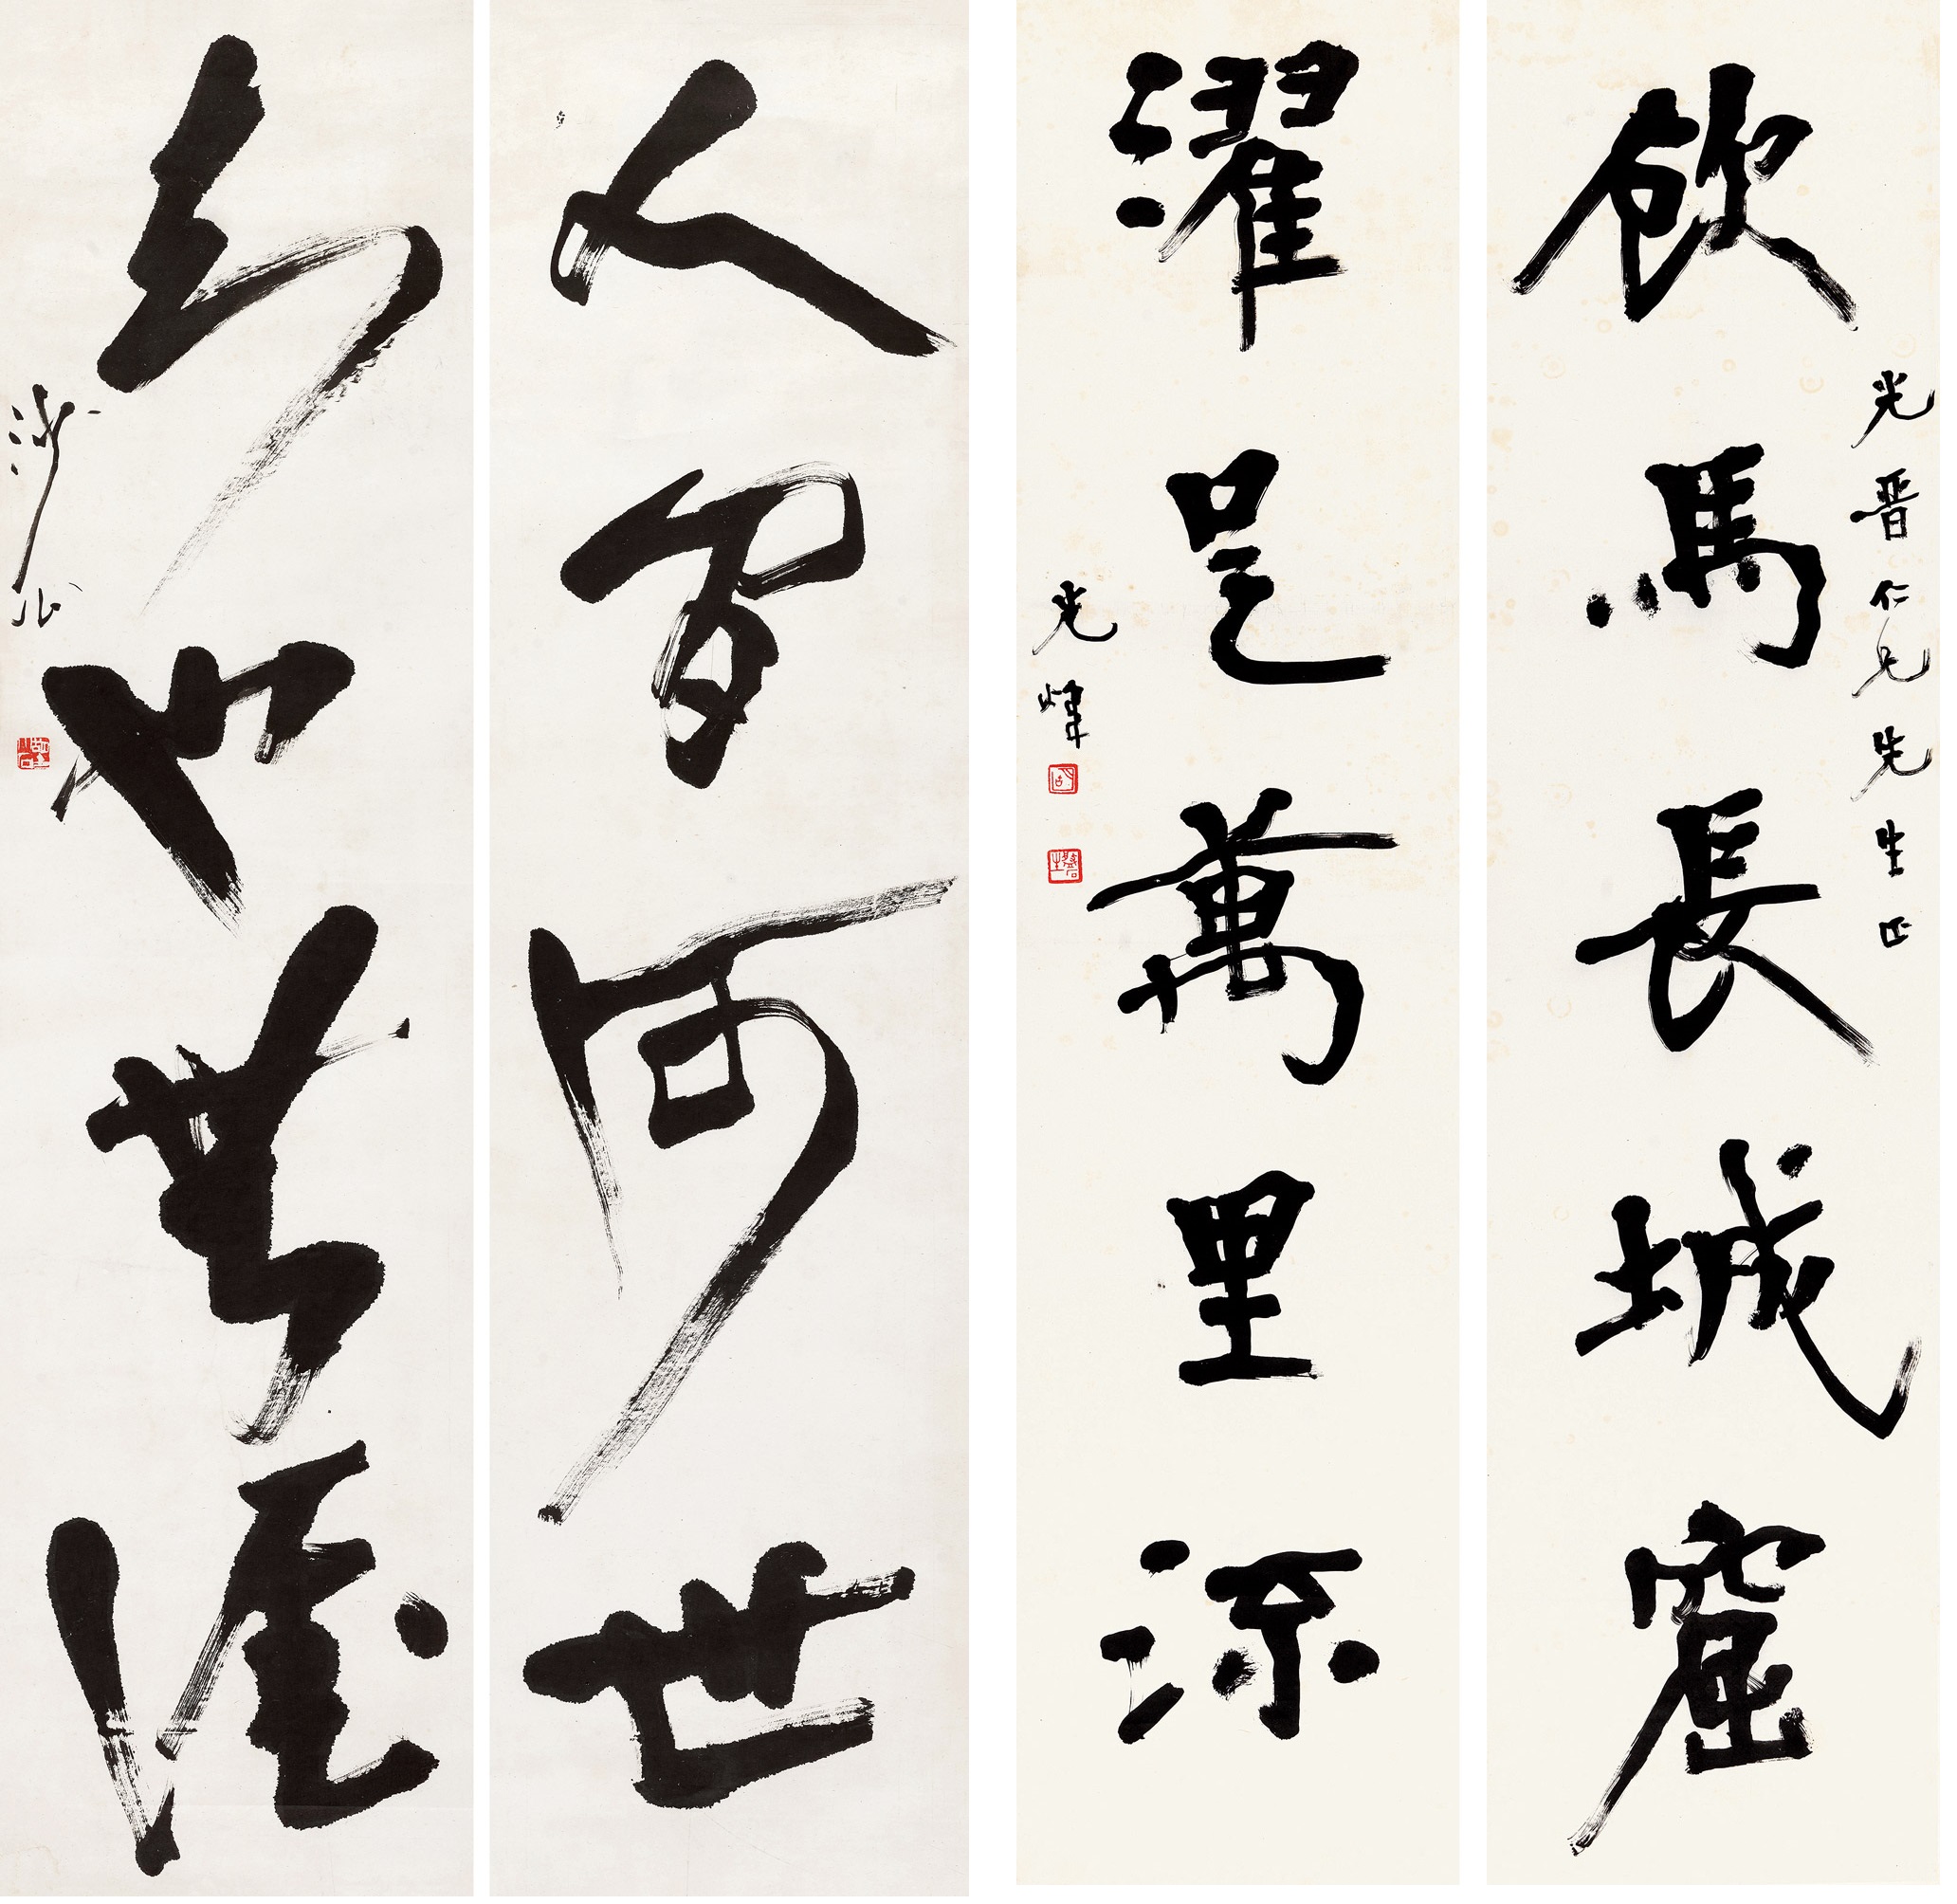 光晋仁兄先生正
飲馬長城窟
濯足萬里流
光煒
人間何世
知也無涯
沙